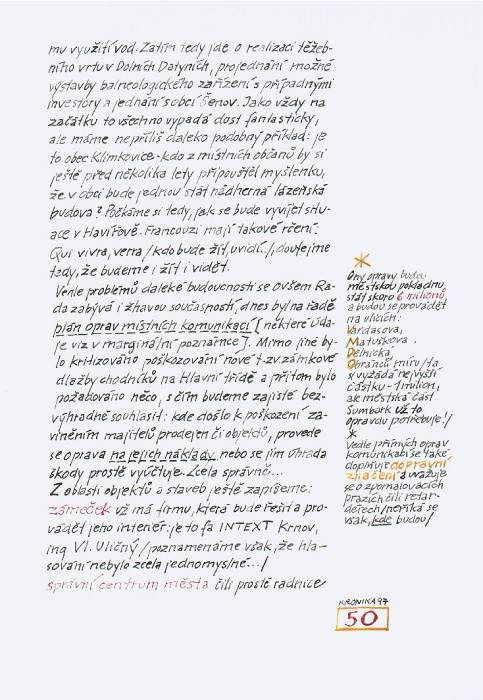 mu využití vod. Zatím tedy jde o realizaci těžeb-
ního vrtu v Dolních Datyních, projednání možné
výstavby balneologického zařízení s případnými
investory a jednání s obcí Šenov. Jako vždy na
začátku to všechno vypadá dost fantasticky,
ale máme nepříliš daleko podobný příklad: je
to obec Klimkovice - kdo z místních občanů by si
ještě před několika lety připouštěl myšlenku,
že v obci bude jednou stát nádherná lázeňská
budova? Počkáme si tedy, jak se bude vyvíjet situ-
ace v Havířově. Francouzi mají takové rčení:
Qui vivra, verra /kdo bude žít, uvidí./, doufejme
tedy, že budeme i žít i vidět.
Vedle problémů daleké budoucnosti se ovšem Ra-
da zabývá i žhavou současností, dnes byl na řadě
plán oprav místních komunikací [některé úda-
je viz v marginální poznámce]. Mimo jiné by-
lo kritizováno poškozování nové t.zv. zámkové
dlažby chodníků na Hlavní třídě a přitom bylo
požadováno něco, s čím budeme zajisté bez-
výhradně souhlasit: kde došlo k poškození za-
viněním majitelů prodejen či objektů, provede
se oprava na jejich náklady nebo se jim úhrada
škody prostě vyúčtuje. Zcela správně...
Z oblasti objektů a staveb ještě zapíšeme:
zámeček už má firmu, která bude řešit a pro-
vádět jeho interiér: je to fa INTEXT Krnov,
ing Vl. Uličný /poznamenáme však, že hla-
sování nebylo zcela jednomyslné.../
správní centrum města čili prostě radnice
*
Ony opravy budou
městskou pokladnu
stát skoro 6 milionů
a budou se provádět
na ulicích:
Vardasova,
Matuškova.
Dělnická,
Obránců míru /ta
si vyžádá nejvyšší
částku - 1 milion,
ale městská část
Šumbark už to
opravdu potřebuje!/
*
Vedle přímých oprav
komunikací se také
doplňuje dopravní
značení a uvažuje
se o zpomalovacích
prazích čili retar-
dérech /neříká se
však, kde budou/
KRONIKA 97
50